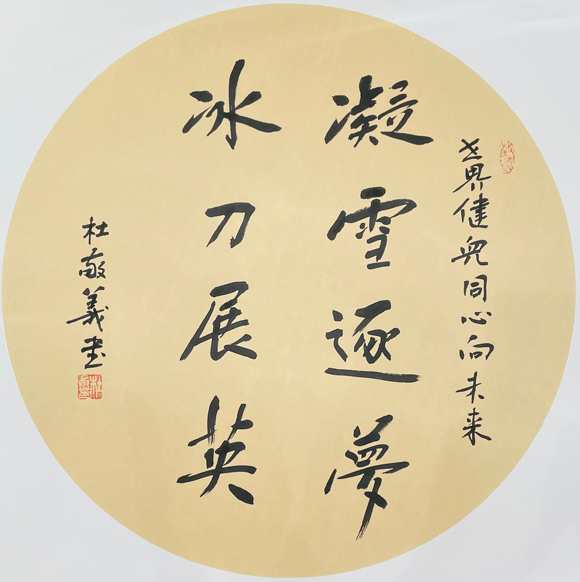 世界健兒同心向未来
凝雪逐夢
冰刀展英
杜敬義書